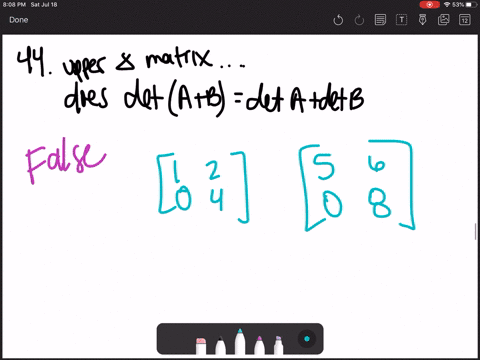 8:08 PM Sat Jul 18
53%
Done
44. upper Δ matrix ...
does det (A+B) = det A + det B
False
[1 2] [5 6]
[0 4] [0 8]